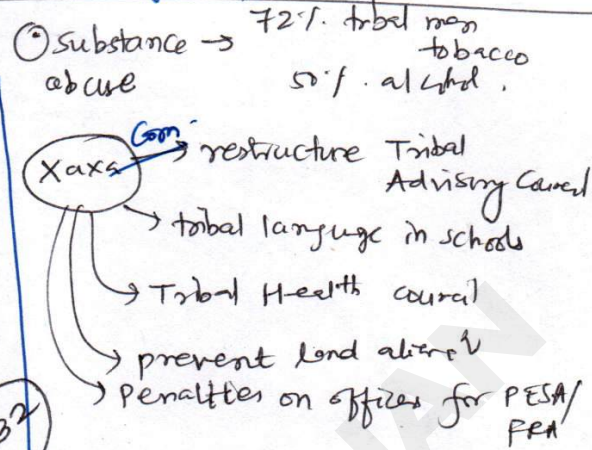 ⊙ substance → 72%. tribal men
tobacco
abuse 50%. alcohol.
Xaxa Com. → restructure Tribal
Advisory Council
→ tribal language in schools
→ Tribal Health council
→ prevent land alienⁿ
→ Penalties on officers for PESA/
FRA
32